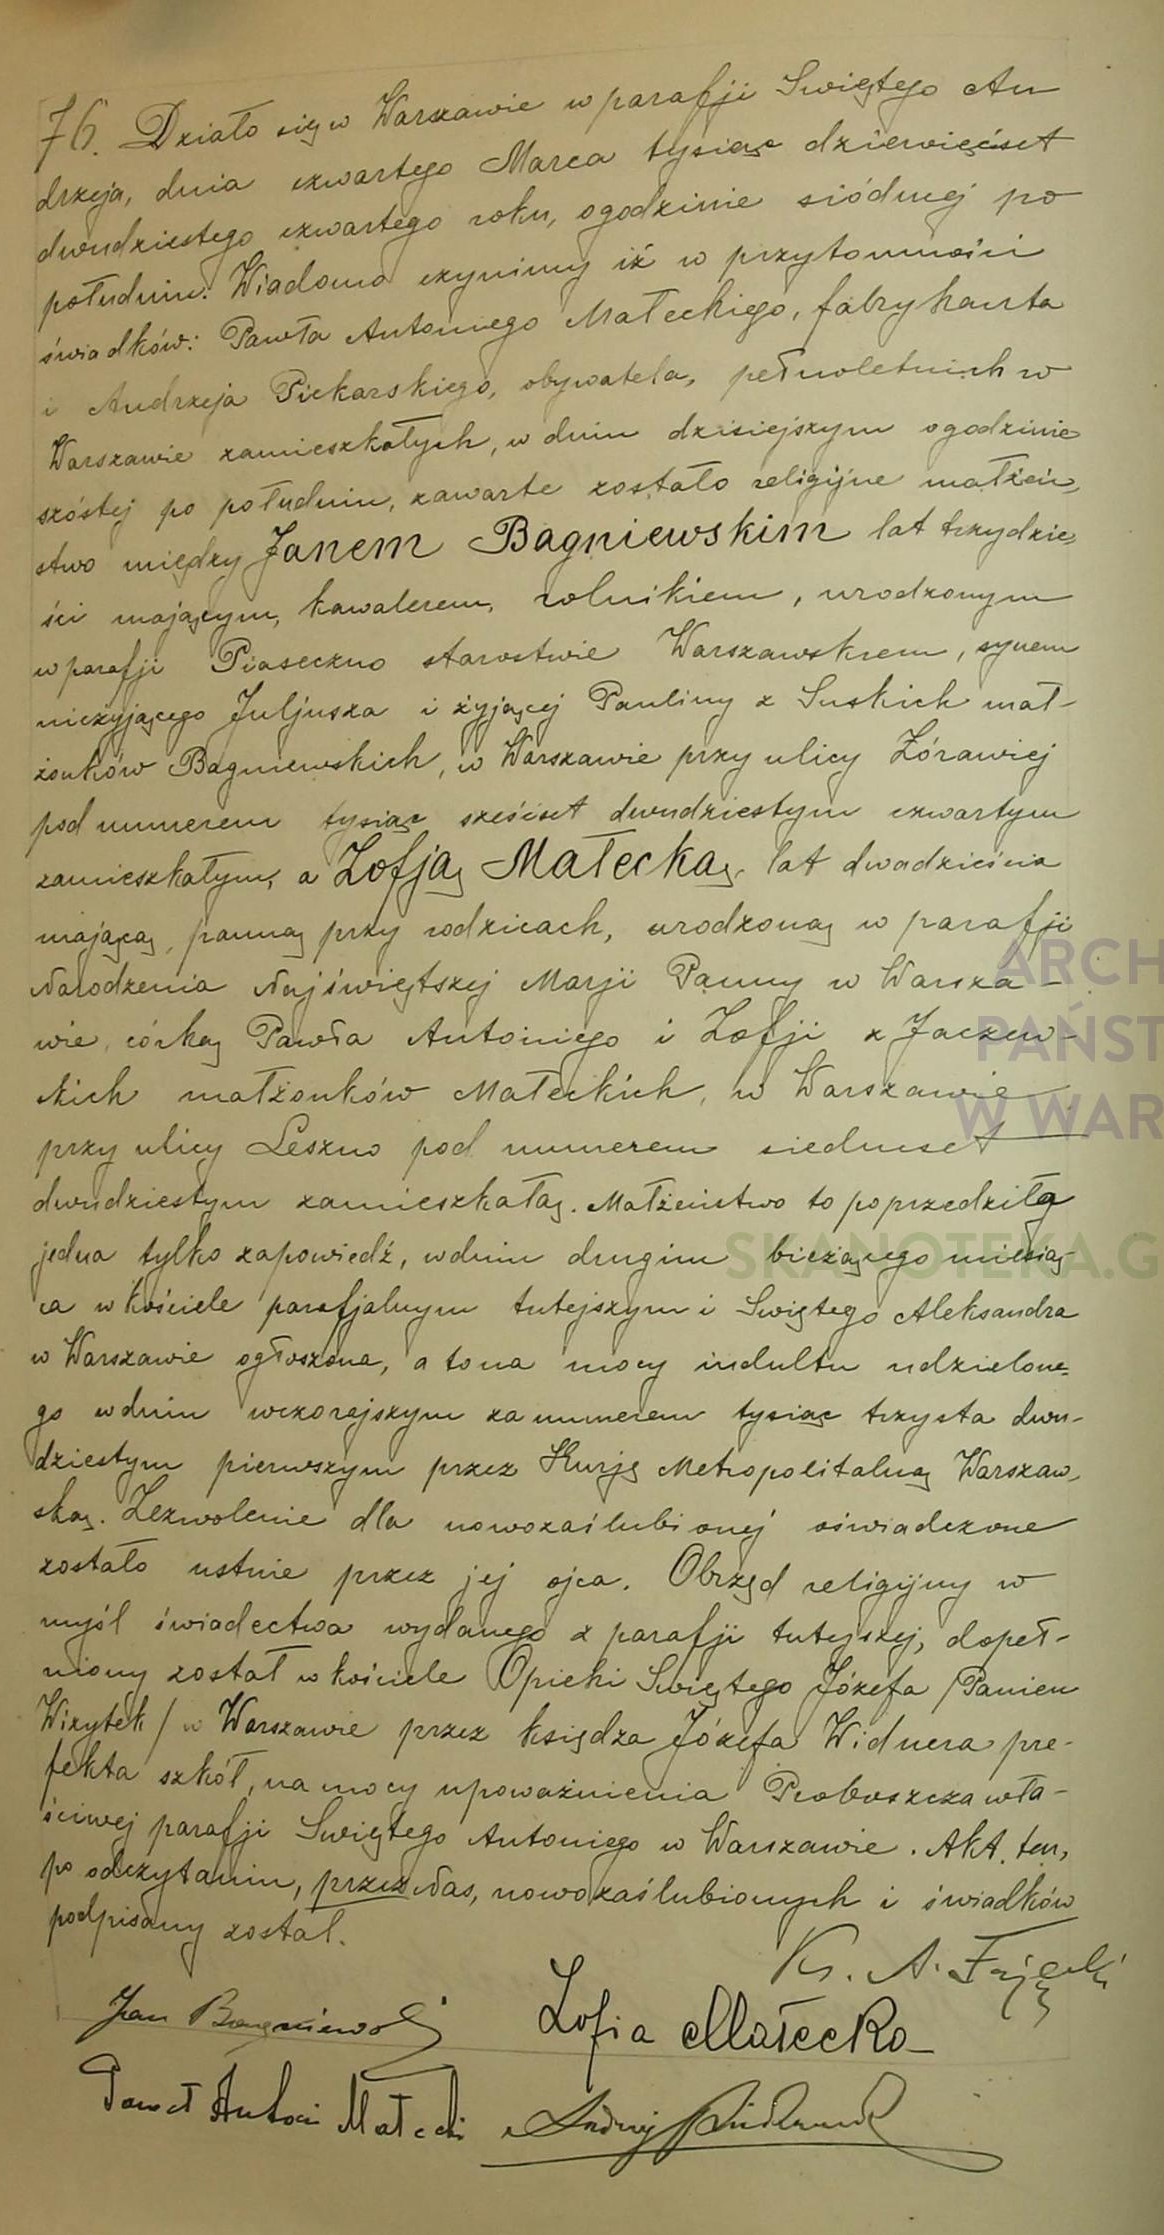 76. Działo się w Warszawie w parafji Swiętego An
drzeja, dnia czwartego Marca tysiąc dziewięćset
dwudziestego czwartego roku, o godzinie siódmej po
południu. Wiadomo czynimy iż w przytomności
świadków: Pawła Antoniego Małeckiego, fabrykanta
i Andrzeja Piekarskiego, obywatela, pełnoletnich w
Warszawie zamieszkałych, w dniu dzisiejszym o godzinie
szóstej po południu, zawarte zostało religijne małżeń-
stwo między Janem Bagniewskim lat trzydzie-
ści mającym, kawalerem, rolnikiem, urodzonym
w parafji Piaseczno starostwie Warszawskiem, synem
nieżyjącego Juljusza i żyjącej Pauliny z Suskich mał-
żonków Bagniewskich, w Warszawie przy ulicy Żórawiej
pod numerem tysiąc sześćset dwudziestym czwartym
zamieszkałym, a Zofją Małecką, lat dwadzieścia
mającą, panną przy rodzicach, urodzoną w parafji
Narodzenia Najświętszej Marji Panny w Warsza-
wie, córką Pawła Antoniego i Zofji z Jaczew-
skich małżonków Małeckich, w Warszawie
przy ulicy Leszno pod numerem siedmset
dwudziestym zamieszkałą. Małżeństwo to poprzedziła
jedna tylko zapowiedź, w dniu drugim bieżącego miesią-
ca w kościele parafjalnym tutejszym i Swiętego Aleksandra
w Warszawie ogłoszona, a to na mocy indultu udzielone-
go w dniu wczorajszym za numerem tysiąc trzysta dwu-
dziestym pierwszym przez Kurję Metropolitalną Warszaw-
ską. Zezwolenie dla nowozaślubionej oświadczone
zostało ustnie przez jej ojca. Obrzęd religijny w
myśl świadectwa wydanego z parafji tutejszej, dopeł-
niony został w kościele Opieki Swiętego Józefa /Panien
Wizytek/ w Warszawie przez księdza Józefa Widnera pre-
fekta szkół, na mocy upoważnienia Proboszcza wła-
ściwej parafji Swiętego Antoniego w Warszawie. Akt ten,
po odczytaniu, przez Nas, nowozaślubionych i świadków
podpisany został.
Ks. A. Fajęcki
Jan Bagniewski Zofia Małecka
Paweł Antoni Małecki Andrzej Piekarski
ARCH
PAŃST
W WAR
SKANOTEKA.G